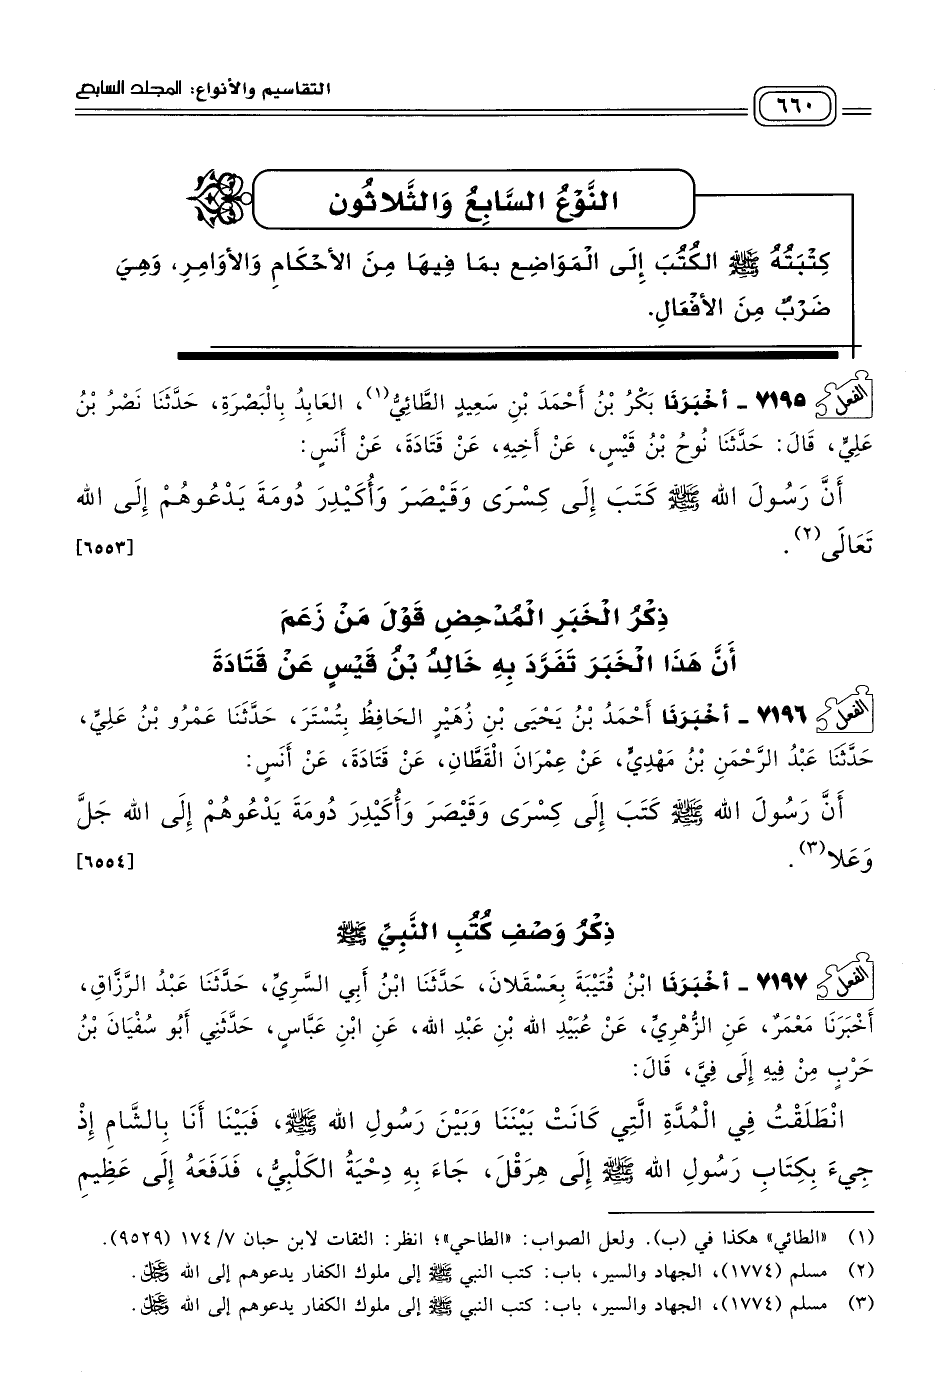 التقاسيم والأنواع: المجلد السابع
٦٦٠
النَّوْعُ السَّابِعُ وَالثَّلاثُون
كِتْبَتُهُ ﷺ الكُتُبَ إِلَى الْمَوَاضِعِ بِمَا فِيهَا مِنَ الأَحْكَامِ وَالأَوَامِرِ، وَهِيَ
ضَرْبٌ مِنَ الأَفْعَالِ.
الفعل ٧١٩٥ - أَخْبَرَنَا بَكْرُ بْنُ أَحْمَدَ بْنِ سَعِيدٍ الطَّائِيُّ(١)، العَابِدُ بِالْبَصْرَةِ، حَدَّثَنَا نَصْرُ بْنُ
عَلِيٍّ، قَالَ: حَدَّثَنَا نُوحُ بْنُ قَيْسٍ، عَنْ أَخِيهِ، عَنْ قَتَادَةَ، عَنْ أَنَسٍ:
أَنَّ رَسُولَ الله ﷺ كَتَبَ إِلَى كِسْرَى وَقَيْصَرَ وَأُكَيْدِرَ دُومَةَ يَدْعُوهُمْ إِلَى الله
تَعَالَى(٢). [٦٥٥٣]
ذِكْرُ الْخَبَرِ الْمُدْحِضِ قَوْلَ مَنْ زَعَمَ
أَنَّ هَذَا الْخَبَرَ تَفَرَّدَ بِهِ خَالِدُ بْنُ قَيْسٍ عَنْ قَتَادَةَ
الفعل ٧١٩٦ - أَخْبَرَنَا أَحْمَدُ بْنُ يَحْيَى بْنِ زُهَيْرٍ الحَافِظُ بِتُسْتَرَ، حَدَّثَنَا عَمْرُو بْنُ عَلِيٍّ،
حَدَّثَنَا عَبْدُ الرَّحْمَنِ بْنُ مَهْدِيٍّ، عَنْ عِمْرَانَ الْقَطَّانِ، عَنْ قَتَادَةَ، عَنْ أَنَسٍ:
أَنَّ رَسُولَ الله ﷺ كَتَبَ إِلَى كِسْرَى وَقَيْصَرَ وَأُكَيْدِرِ دُومَةَ يَدْعُوهُمْ إِلَى الله جَلَّ
وَعَلا(٣). [٦٥٥٤]
ذِكْرُ وَصْفِ كُتُبِ النَّبِيِّ ﷺ
الفعل ٧١٩٧ - أَخْبَرَنَا ابْنُ قُتَيْبَةَ بِعَسْقَلانَ، حَدَّثَنَا ابْنُ أَبِي السَّرِيِّ، حَدَّثَنَا عَبْدُ الرَّزَّاقِ،
أَخْبَرَنَا مَعْمَرٌ، عَنِ الزُّهْرِيِّ، عَنْ عُبَيْدِ الله بْنِ عَبْدِ الله، عَنِ ابْنِ عَبَّاسٍ، حَدَّثَنِي أَبُو سُفْيَانَ بْنُ
حَرْبٍ مِنْ فِيهِ إِلَى فِيَّ، قَالَ:
انْطَلَقْتُ فِي الْمُدَّةِ الَّتِي كَانَتْ بَيْنَنَا وَبَيْنَ رَسُولِ الله ﷺ، فَبَيْنَا أَنَا بِالشَّامِ إِذْ
جِيءَ بِكِتَابِ رَسُولِ الله ﷺ إِلَى هِرَقْلَ، جَاءَ بِهِ دِحْيَةُ الكَلْبِيُّ، فَدَفَعَهُ إِلَى عَظِيمِ
(١) «الطائي» هكذا في (ب). ولعل الصواب: «الطاحي»؛ انظر: الثقات لابن حبان ٧/ ١٧٤ (٩٥٢٩).
(٢) مسلم (١٧٧٤)، الجهاد والسير، باب: كتب النبي ﷺ إلى ملوك الكفار يدعوهم إلى الله ﷿.
(٣) مسلم (١٧٧٤)، الجهاد والسير، باب: كتب النبي ﷺ إلى ملوك الكفار يدعوهم إلى الله ﷿.